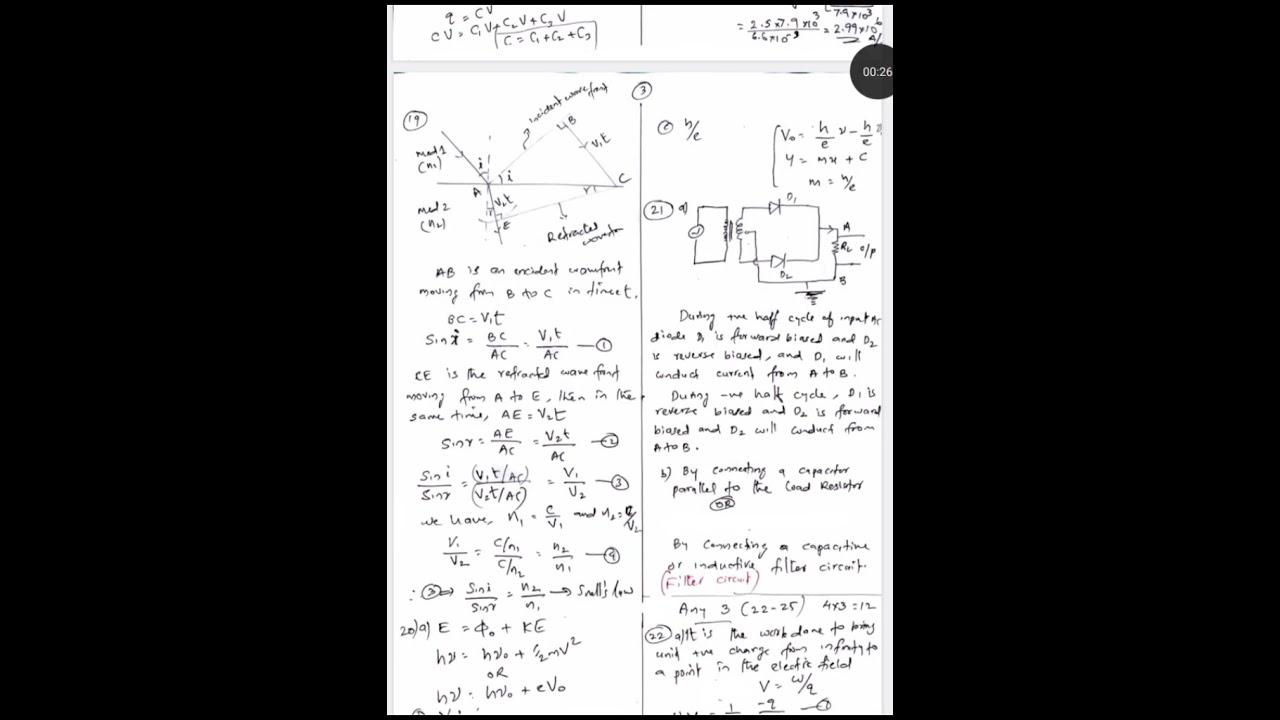 q = CV
CV = C₁V + C₂V + C₃V
C = C₁ + C₂ + C₃
7.9×10³
= 2.5×7.9×10³ / 6.6×10⁻³ = 2.99×10⁶ A/
00:26
③
⑲
incident wavefront
B
V₁t
med 1
(n₁)
i
i
A
r
C
med 2
(n₂)
V₂t
r
E
Refracted
AB is an incident wavefront
moving from B to C in time t.
BC = V₁t
Sin i = BC/AC = V₁t/AC —①
CE is the refracted wave front
moving from A to E, then in the
same time, AE = V₂t
Sin r = AE/AC = V₂t/AC —②
Sin i/Sin r = (V₁t/AC)/(V₂t/AC) = V₁/V₂ —③
we have, n₁ = C/V₁ and n₂ = C/V₂
V₁/V₂ = C/n₁ / C/n₂ = n₂/n₁ —④
∴ ③ ⇒ Sin i/Sin r = n₂/n₁ → Snell's law
20) a) E = Φ₀ + KE
hν = hν₀ + ½mV²
OR
hν = hν₀ + eV₀
c) h/e
V₀ = h/e ν − h/e
y = mx + c
m = h/e
㉑ a)
D₁
D₂
A
R_L
O/P
B
During +ve half cycle of input AC
diode D₁ is forward biased and D₂
is reverse biased, and D₁ will
conduct current from A to B.
During -ve half cycle, D₁ is
reverse biased and D₂ is forward
biased and D₂ will conduct from
A to B.
b) By connecting a capacitor
parallel to the Load Resistor
OR
By connecting a capacitive
or inductive filter circuit.
(Filter circuit)
Any 3 (22-25) 4×3=12
㉒ a) It is the work done to bring
unit +ve charge from infinity to
a point in the electric field
V = W/q
1 -q —①